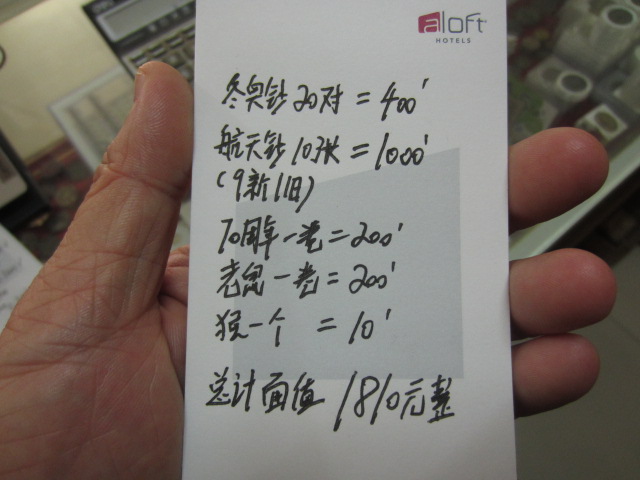 aloft
HOTELS
冬奥钞20对=400'
航天钞10张=1000'
(9新1旧)
70周年一卷=200'
老鼠一卷=200'
猴一个 =10'
总计面值 1810元整